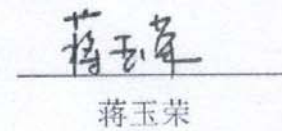 蒋玉荣
蒋玉荣